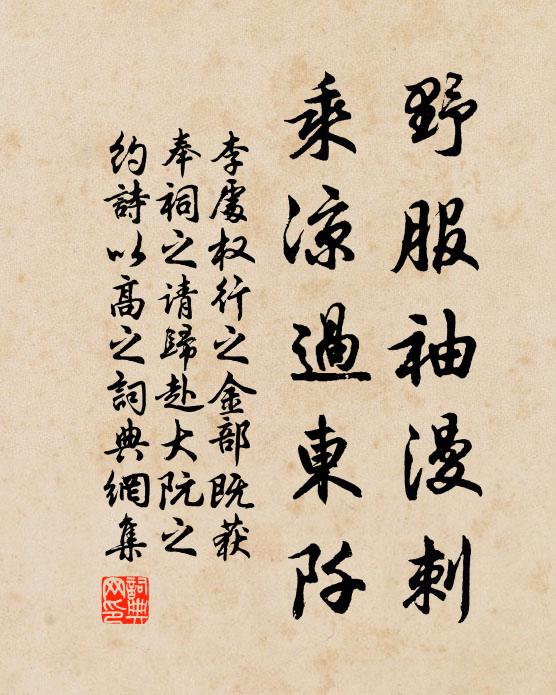 野服袖漫刺
乘涼過東阡
李處权行之金部既获
奉祠之请歸赴大阮之
约詩以高之詞典網集
詞典网印